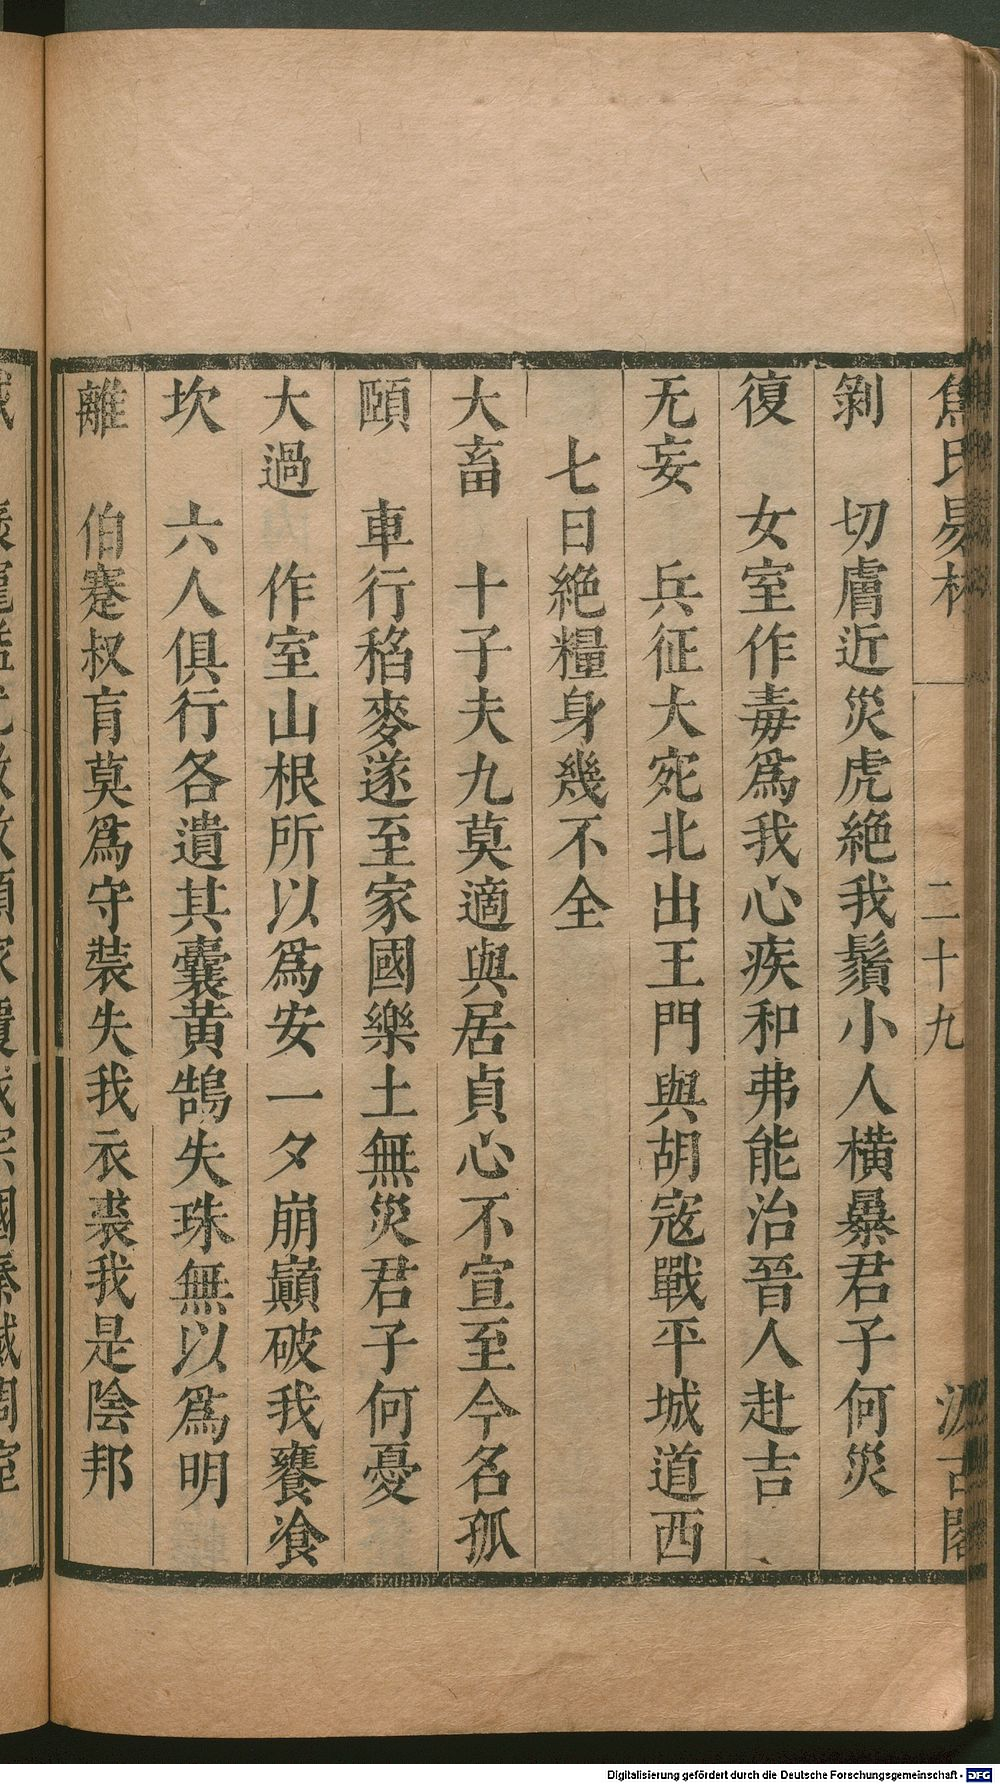 焦氏易林 二十九 汲古閣
剝 切膚近災虎絶我鬚小人橫暴君子何災
復 女室作毒爲我心疾和弗能治晉人赴吉
无妄 兵征大宛北出王門與胡寇戰平城道西
七日絶糧身幾不全
大畜 十子夫九莫適與居貞心不宣至今名孤
頤 車行稻麥遂至家國樂土無災君子何憂
大過 作室山根所以爲安一夕崩巔破我饔飡
坎 六人俱行各遺其囊黄鵠失珠無以爲明
離 伯蹇叔盲莫爲守裝失我衣裘我是陰邦
Digitalisierung gefördert durch die Deutsche Forschungsgemeinschaft - DFG